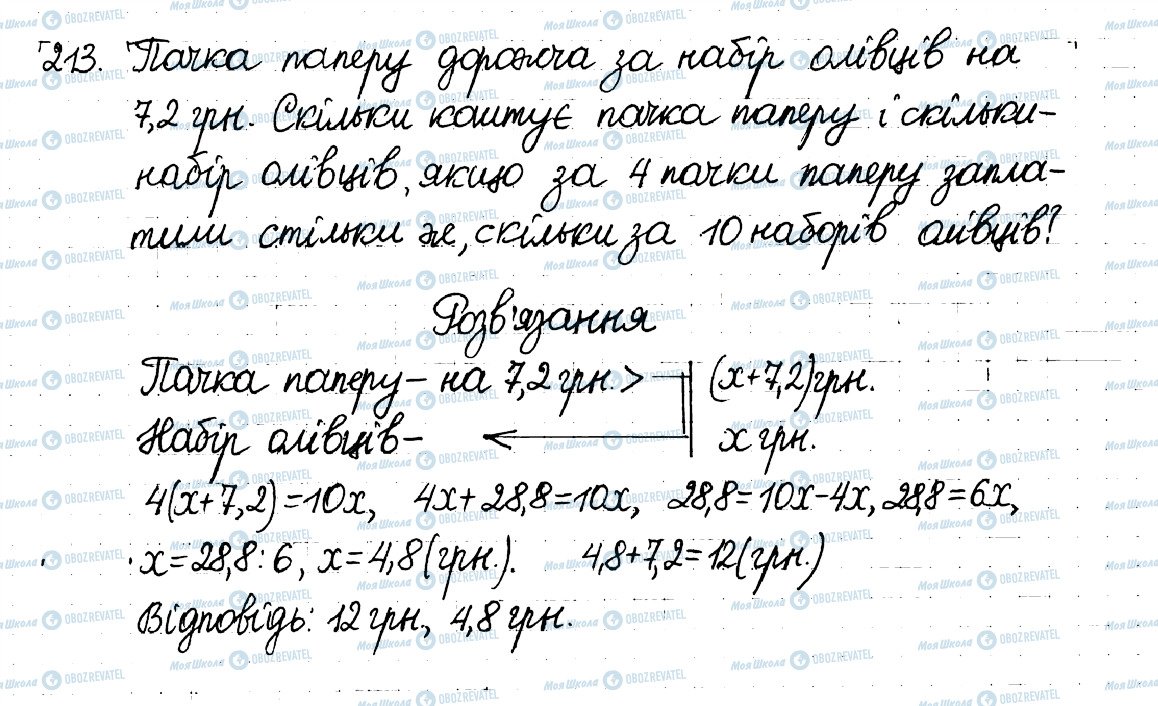 213. Пачка паперу дорожча за набір олівців на
7,2 грн. Скільки коштує пачка паперу і скільки-
набір олівців, якщо за 4 пачки паперу запла-
тили стільки же, скільки за 10 наборів олівців?
Розв'язання
Пачка паперу – на 7,2 грн. > (x+7,2) грн.
Набір олівців – x грн.
4(x+7,2)=10x, 4x+28,8=10x, 28,8=10x-4x, 28,8=6x,
x=28,8:6, x=4,8(грн.). 4,8+7,2=12(грн.)
Відповідь: 12 грн, 4,8 грн.